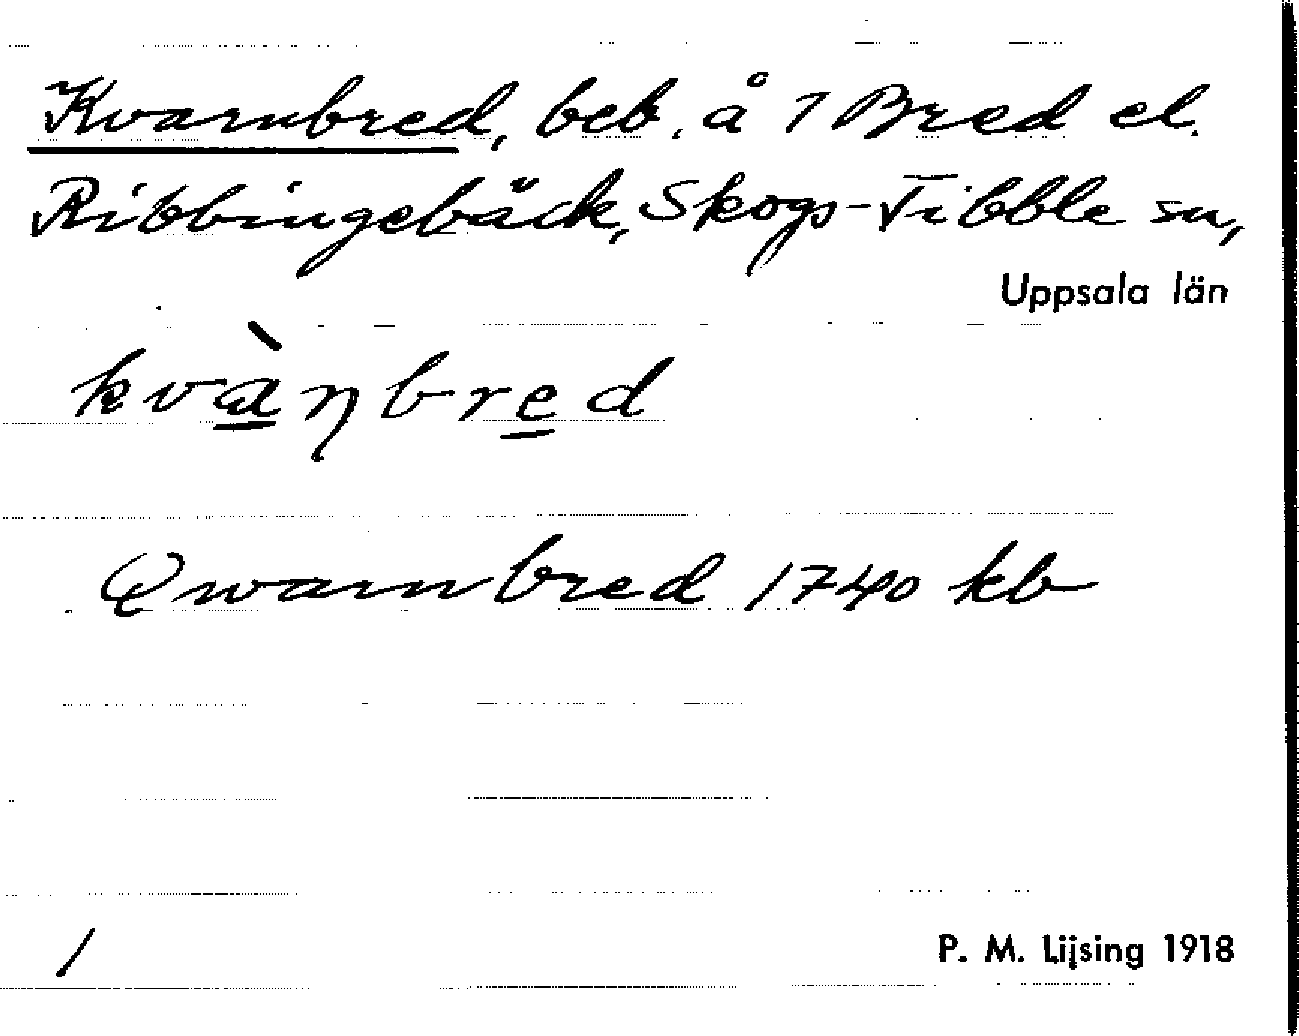 Kvarnbred, beb. å 1 Bred el.
Ribbingebäck, Skogs-Tibble sn,
Uppsala län
kvàŋbred
Qwarnbred 1740 kb
/
P. M. Lijsing 1918